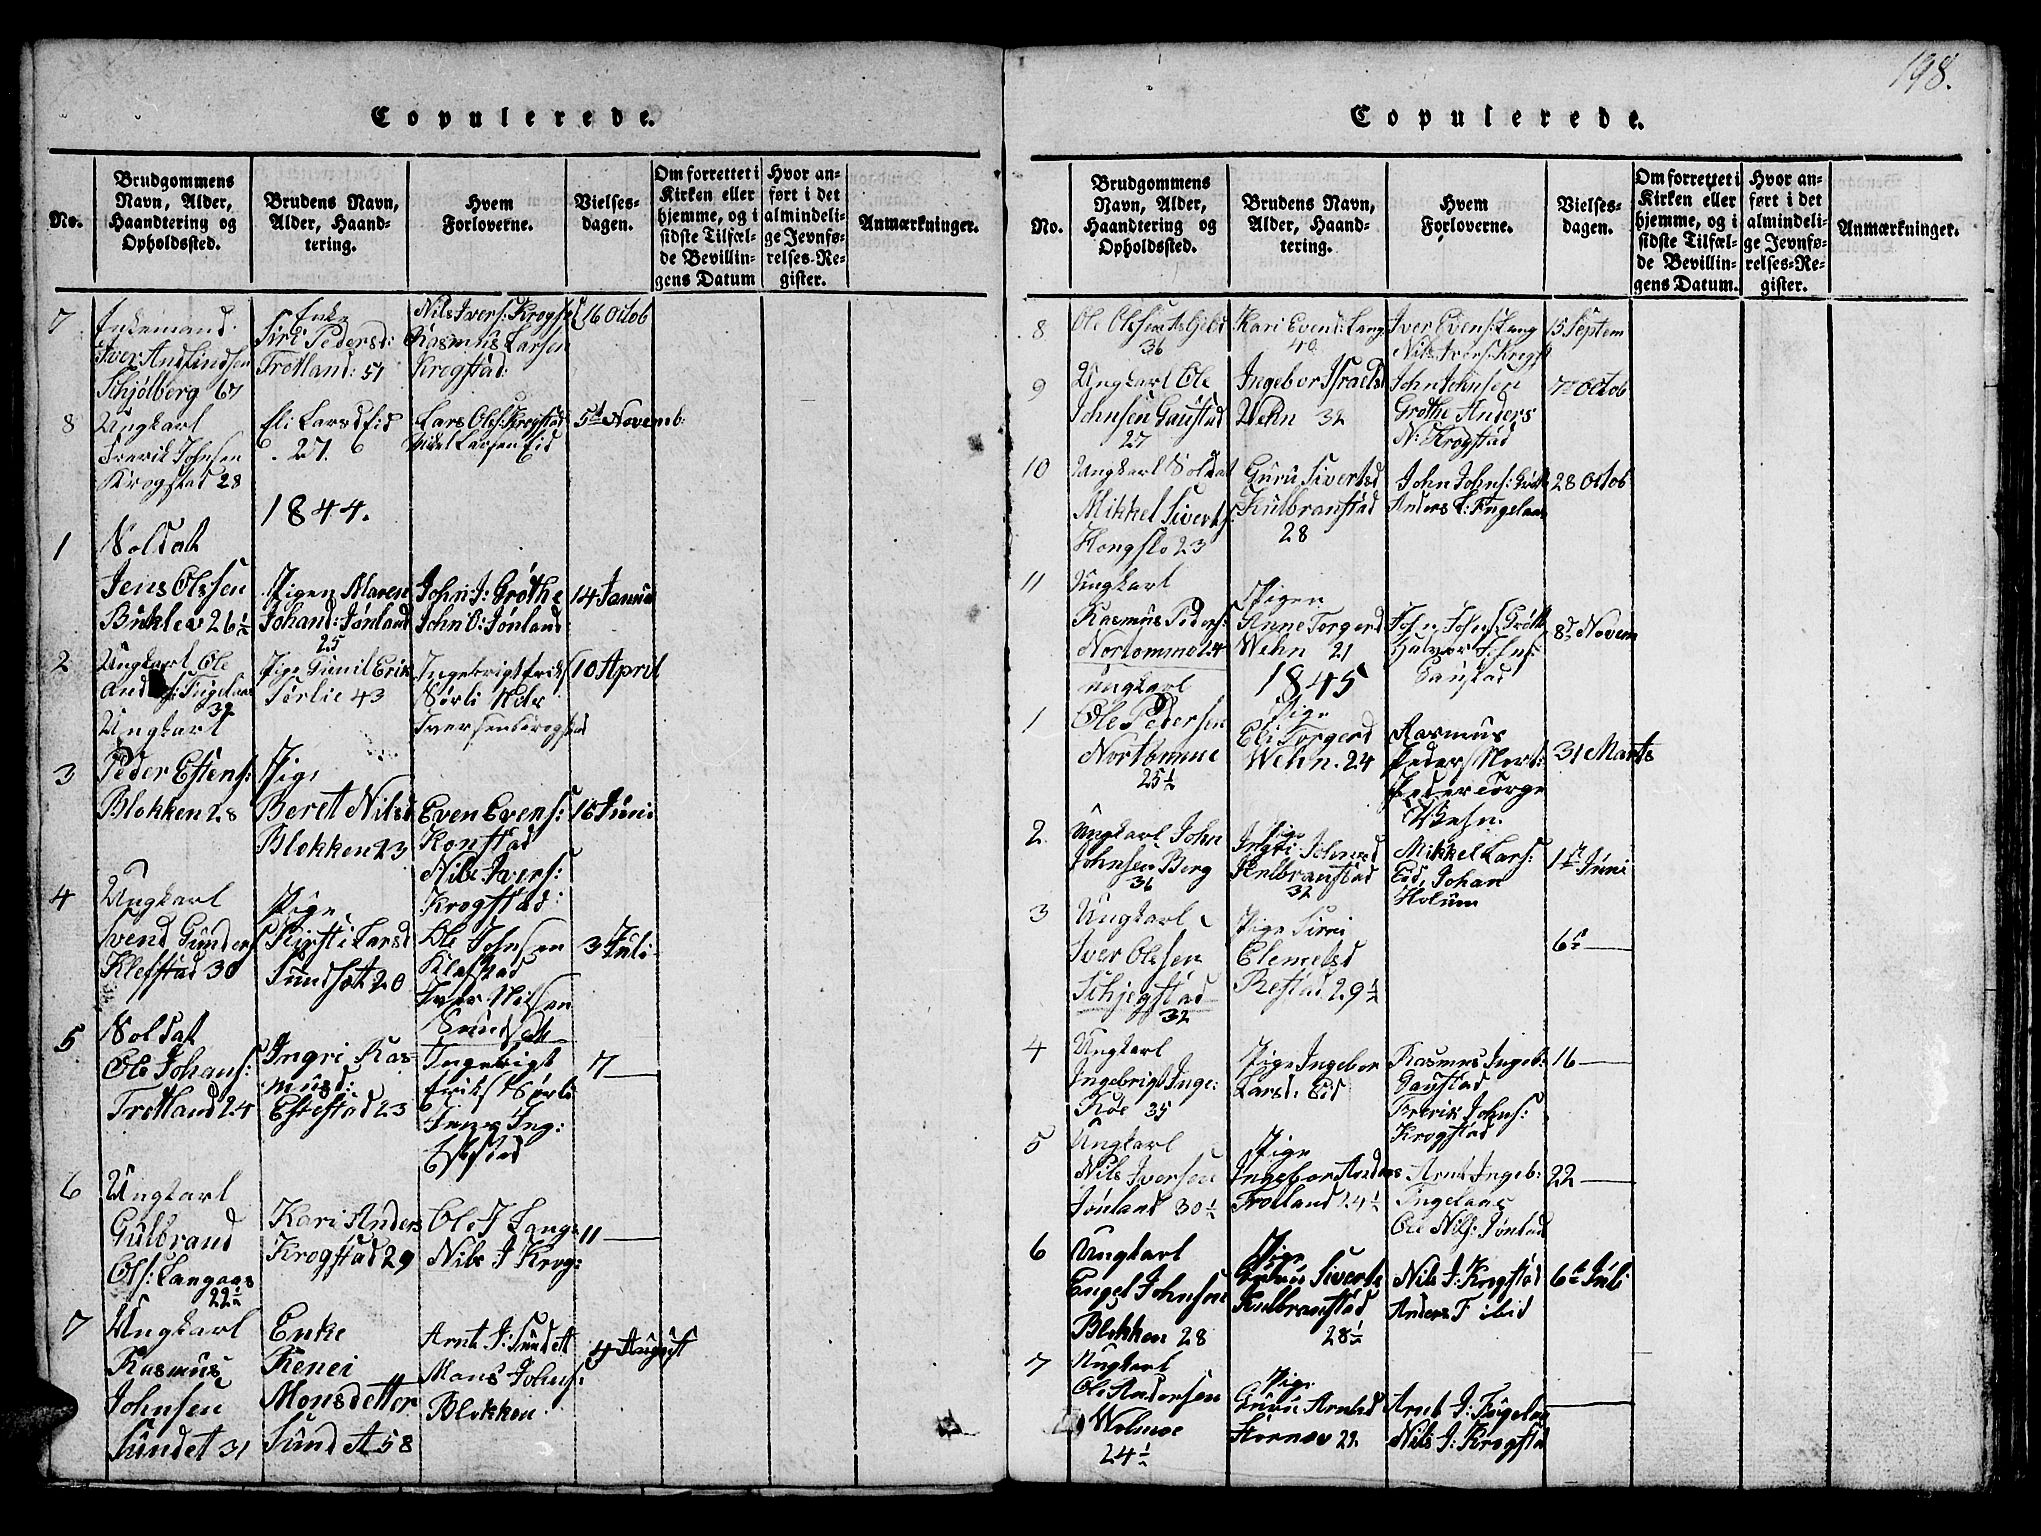 198.
Copulerede.
No.
Brudgommens
Navn, Alder,
Haandtering og
Opholdssted.
Brudens Navn,
Alder, Haand-
tering.
Hvem
Forloverne.
Vielses-
dagen.
Om forrettet i
Kirken eller
hjemme, og i
sidste Tilfæl-
de Bevillin-
gens Datum
Hvor an-
ført i det
almindeli-
ge Jevnfø-
relses-Re-
gister.
Anmærkninger.
7
Enkemand
Iver Amundsen
Schjølberg 67
Enke
Siri Pedersd:
Trotland: 51
Nils Ivers: Krogst
Rasmus Larsen
Krogstad:
16 Octob
8
Ungkarl
Frerik Johnsen
Krogstad 28
Eli Larsd Eid
27
Lars Ols: Krogstad
Mikel Larsen Eid
5te Novemb:
1844.
1
Soldat
Jens Olssen
Buklev 26½
Pigen Maren
Johand: Jønland
25
John J: Grøthe
John O: Jønland
14 Janua
2
Ungkarl Ole
And: Fugelaas
32
Pige Gunil Erik
Sørlie 43
Ingebrigt Eriks
Sørli Nils
Iversen Krogstad
10 April
3
Ungkarl
Peder Estens:
Blokken 28
Pige
Beret Nilsd
Blokken 23
Even Evens:
Konstad
Nils Ivers:
Krogstad:
16 Juni
4
Ungkarl
Svend Gunders
Klefstad 30
Pige
Kirsti Larsd
Sundset 20
Ole Johnsen
Klefstad
Iver Nilsen
Sundset
3 Juli
5
Soldat
Ole Johans:
Trotland 24
Ingri Ras-
musd:
Estestad 23
Ingebrigt
Eriks Sørli
Jens Ing:
Estestad
7 —
6
Ungkarl
Gulbrand
Ols: Langaas
22½
Kari Anders
Krogstad 29
Ole J Lange
Nils J Krog:
11 —
7
Ungkarl
Rasmus
Johnsen
Sundet 31
Enke
Renei
Monsdetter
Sundet 58
Arnt J: Sundet
Mons Johns:
Blokken
4 August
Copulerede.
No.
Brudgommens
Navn, Alder,
Haandtering og
Opholdssted.
Brudens Navn,
Alder, Haand-
tering.
Hvem
Forloverne.
Vielses-
dagen.
Om forrettet i
Kirken eller
hjemme, og i
sidste Tilfæl-
de Bevillin-
gens Datum.
Hvor an-
ført i det
almindeli-
ge Jevnfø-
relses-Re-
gister.
Anmærkninger.
8
Ole Olsen
36
Kari Evend: Lang
40
Iver Evens: Lang
Nils Ivers: Krogst
15 Septem
9
Ungkarl Ole
Johnsen Gaustad
27
Ingebor Israelsd
Wehn 32
John Johnsen
Grøthe Anders
N: Krogstad
7de Octob
10
Ungkarl Soldat
Mikkel Siverts:
Kongslo 23
Guru Sivertsd
Kulbranstad
28
John Johns: Grøthe
Anders L: Fugelaas
28 Octob
11
Ungkarl
Rasmus Peders:
Nortømme 24
Pigen
Anne Torgerd
Wehn 21
John Johns Grøth
Halvor Johns:
Gaustad
8de Novem
1845
1
Ungkarl
Ole Pedersen
Nortømme
25½
Pige
Eli Torgerd
Wehn. 24
Rasmus
Peders Nort:
Peder Torge
Wehn.
31 Marts
2.
Ungkarl John
Johnsen Berg
36
Pige
Ingri Johnsd
Kulbranstad
32
Mikkel Lars:
Eid, Johan
Holum
1ste Juni
3
Ungkarl
Iver Olssen
Schjegstad
32
Pige Siri
Clemetsd
Restad 29½
6te —
4
Ungkarl
Ingebrigt Inge:
Roe 35
Pige Ingebor
Larsd: Eid
Rasmus Ingeb:
Gaustad
Frerik Johns:
Krogstad
16 —
5
Ungkarl
Nils Iversen
Jønland 30½
Pige
Ingebor Anders
Trotland 24½
Arnt Ingeb:
Fugelaas
Ole Nils: Jønland
22 —
6
Ungkarl
Engel Johnsen
Blokken 28
Pige
Guru Siverts
Kulbranstad
28½
Nils J: Krogstad
Anders F ibid
6te Juli
7
Ungkarl
Ole Andersen
Wolmoe
24½
Pige
Guru Arntsd
Størnev 22.
Arnt J: Fugelaas
Nils J: Krogstad
—